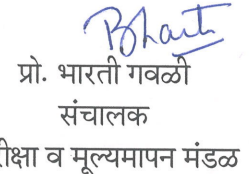 Bharti
प्रो. भारती गवळी
संचालक
रीक्षा व मूल्यमापन मंडळ